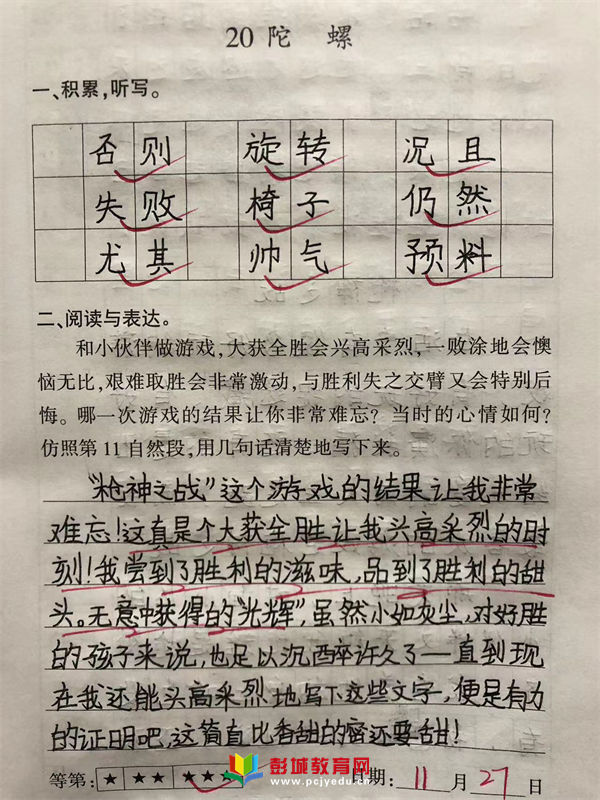 20 陀 螺
一、积累,听写。
否则 旋转 况且
失败 椅子 仍然
尤其 帅气 预料
二、阅读与表达。
和小伙伴做游戏,大获全胜会兴高采烈,一败涂地会懊
恼无比,艰难取胜会非常激动,与胜利失之交臂又会特别后
悔。哪一次游戏的结果让你非常难忘?当时的心情如何?
仿照第11自然段,用几句话清楚地写下来。
“枪神之战”这个游戏的结果让我非常
难忘!这真是个大获全胜让我头高采烈的时
刻!我尝到了胜利的滋味,品到了胜利的甜
头。无意中获得的“光辉”,虽然小如灰尘,对好胜
的孩子来说,也足以沉醉许久了——直到现
在我还能头高采烈地写下这些文字,便是有力
的证明吧,这简直比香甜的密还要甜!
等第: ★ ★ ★ ★ ★ ★ 日期: 11 月 27 日
彭城教育网
www.pcjyedu.com